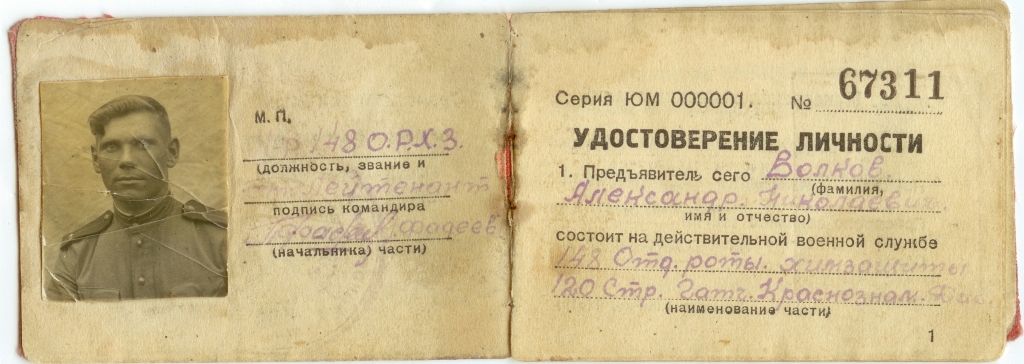 М. П.
148 О.Р.Х.З.
(должность, звание и
Лейтенант
подпись командира
Фадеев
(начальника) части)
67311
Серия ЮМ 000001. №
УДОСТОВЕРЕНИЕ ЛИЧНОСТИ
1. Предъявитель сего Волков
(фамилия,
Александр Николаевич
имя и отчество)
состоит на действительной военной службе
148 Отд. роты. химзащиты
120 Стр. Гатч. Краснознам. Див.
(наименование части)
1